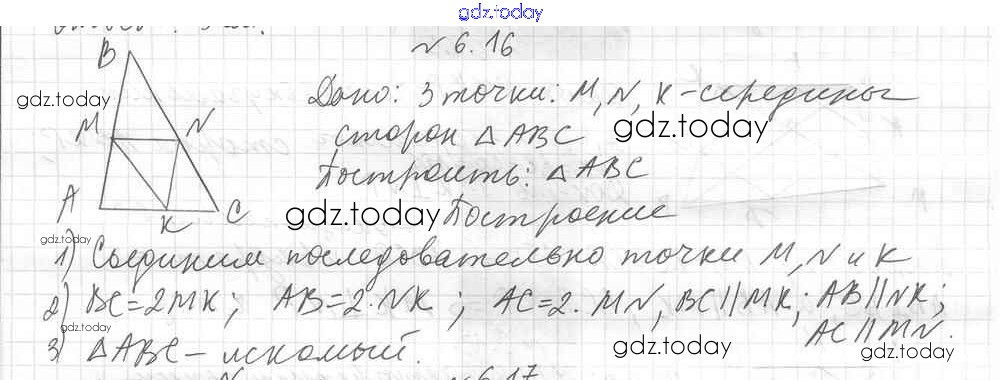 gdz.today
№ 6.16
B
gdz.today
Дано: 3 точки: M, N, K - середины
M N
сторон △ ABC
gdz.today
Построить: △ ABC
A K C
gdz.today
Построение
gdz.today
1) Соединим последовательно точки M, N и K
2) BC=2MK; AB=2·NK; AC=2·MN, BC||MK; AB||NK;
AC||MN.
gdz.today
3) △ABC - искомый.
gdz.today
gdz.today
№ 6.17